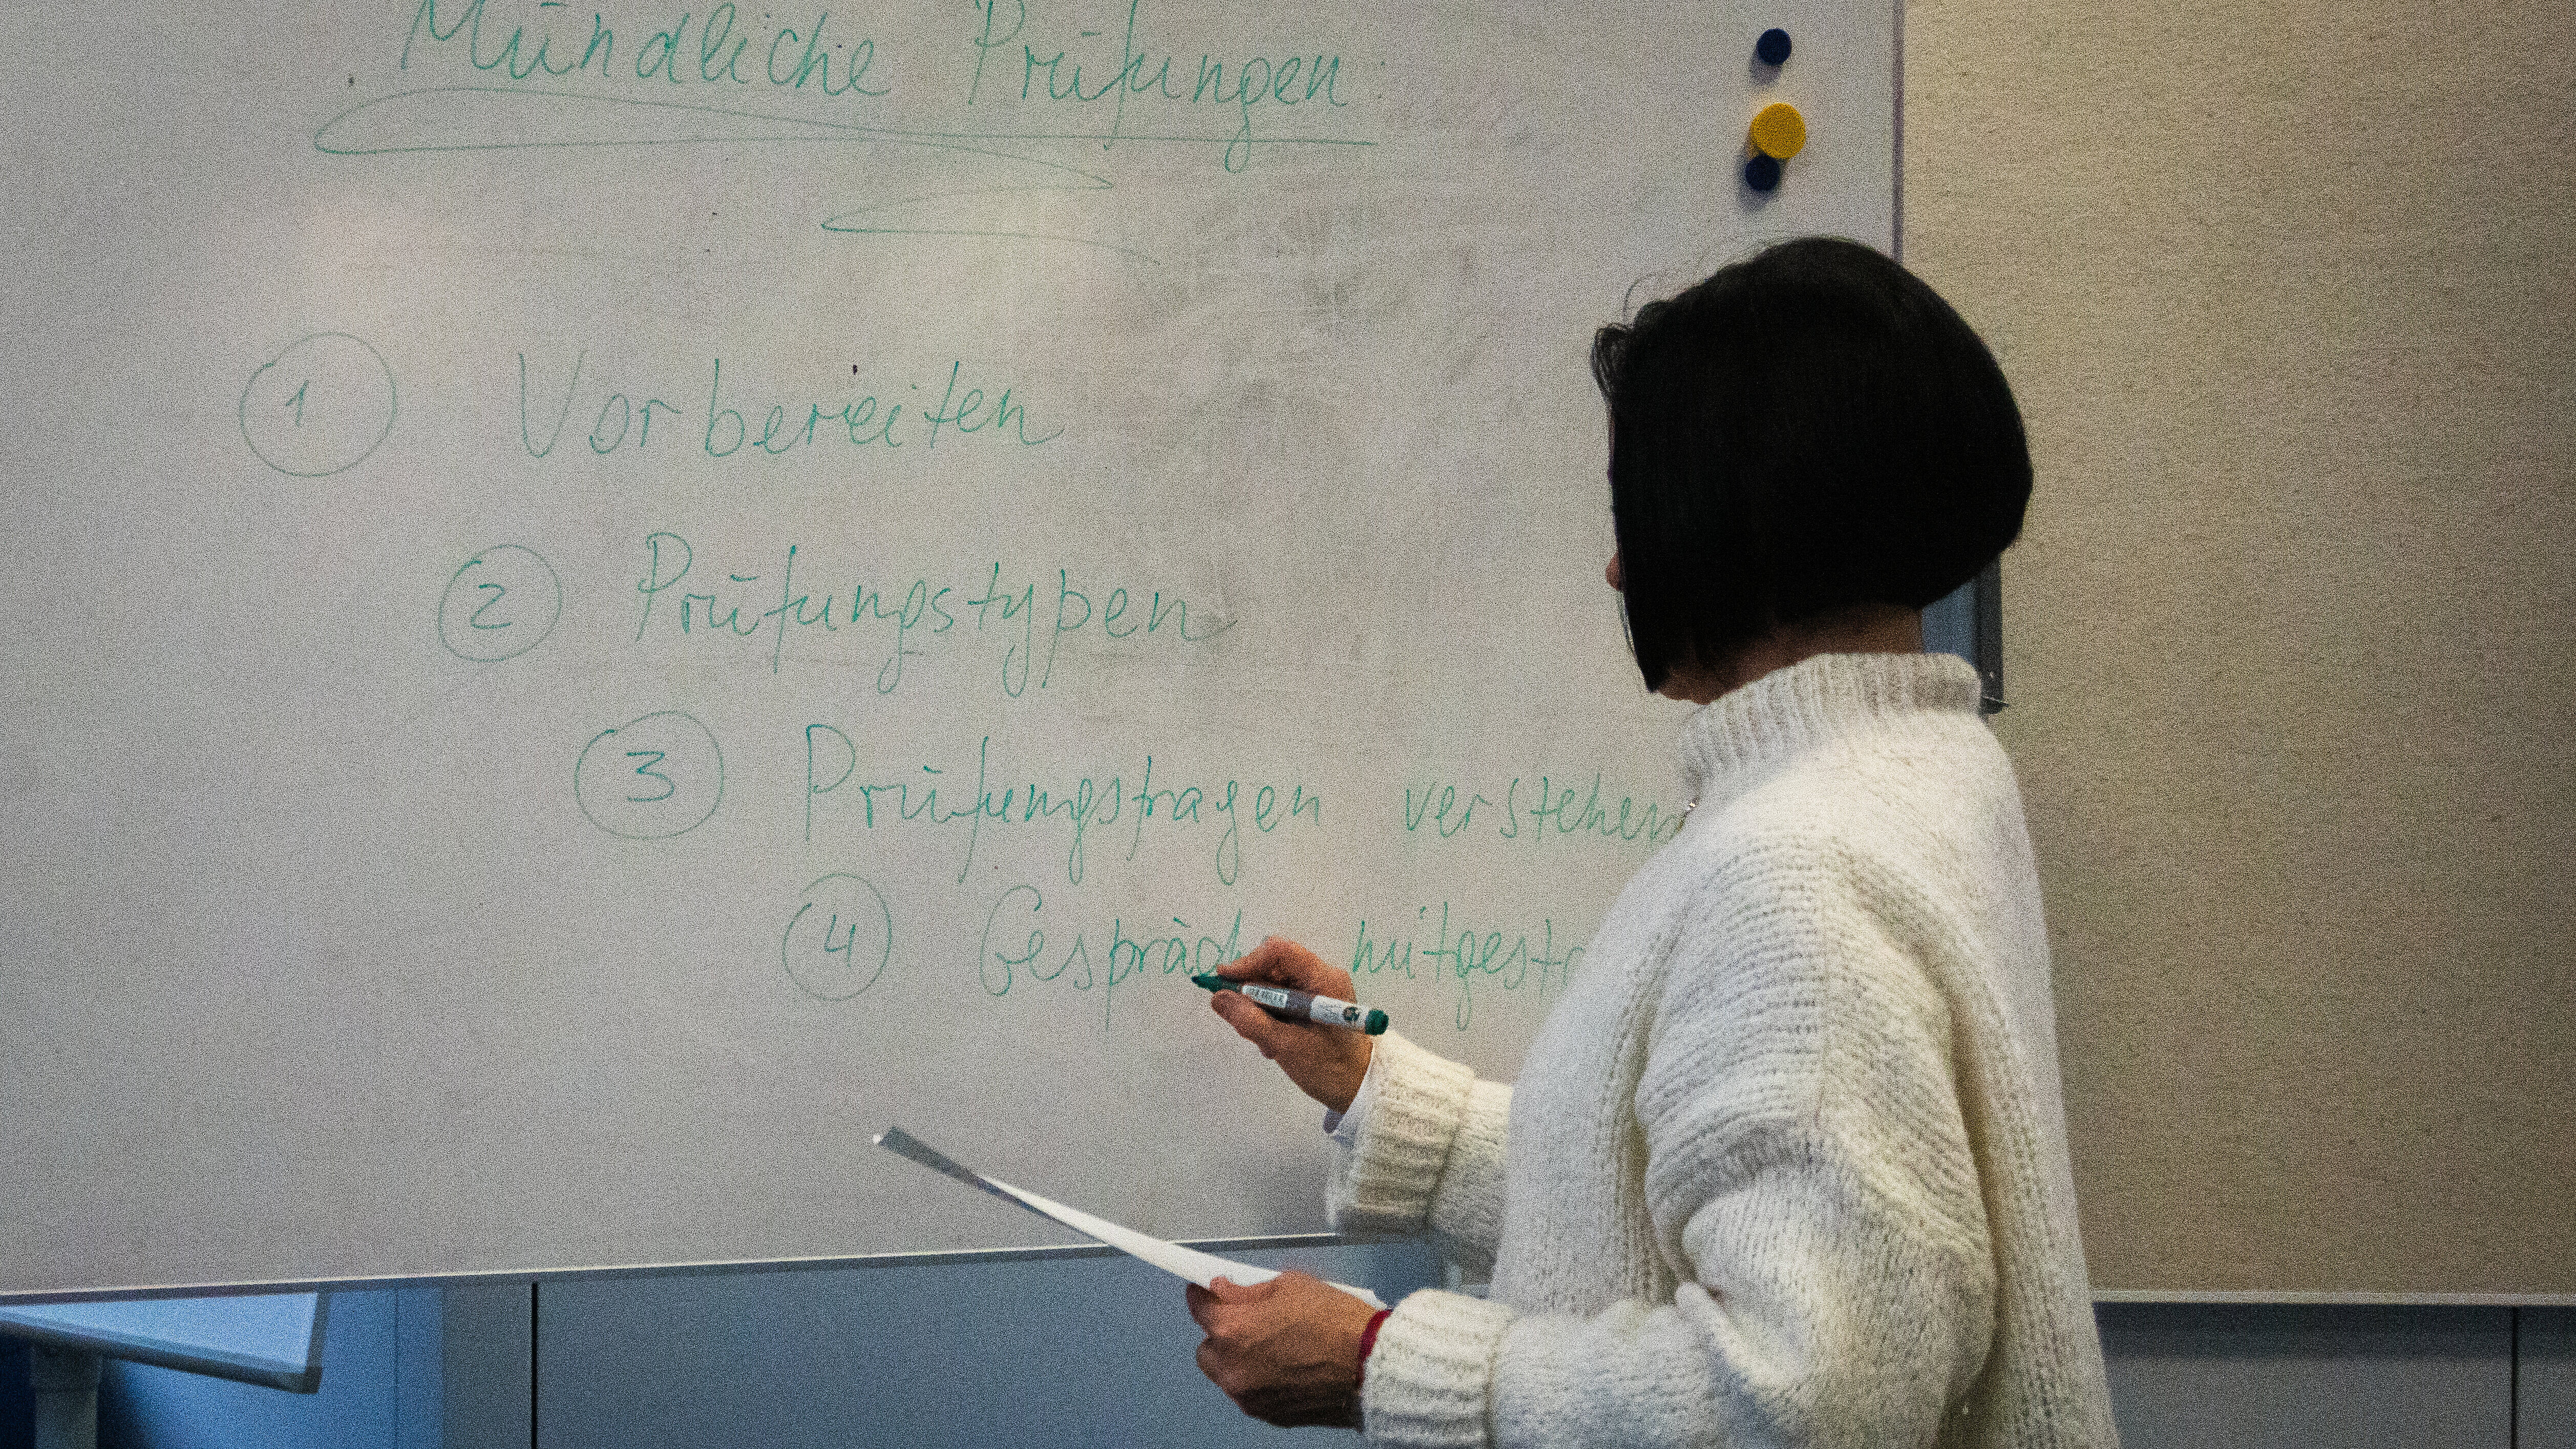 Mündliche Prüfungen
1 Vorbereiten
2 Prüfungstypen
3 Prüfungsfragen verstehen
4 Gespräch mitgesta